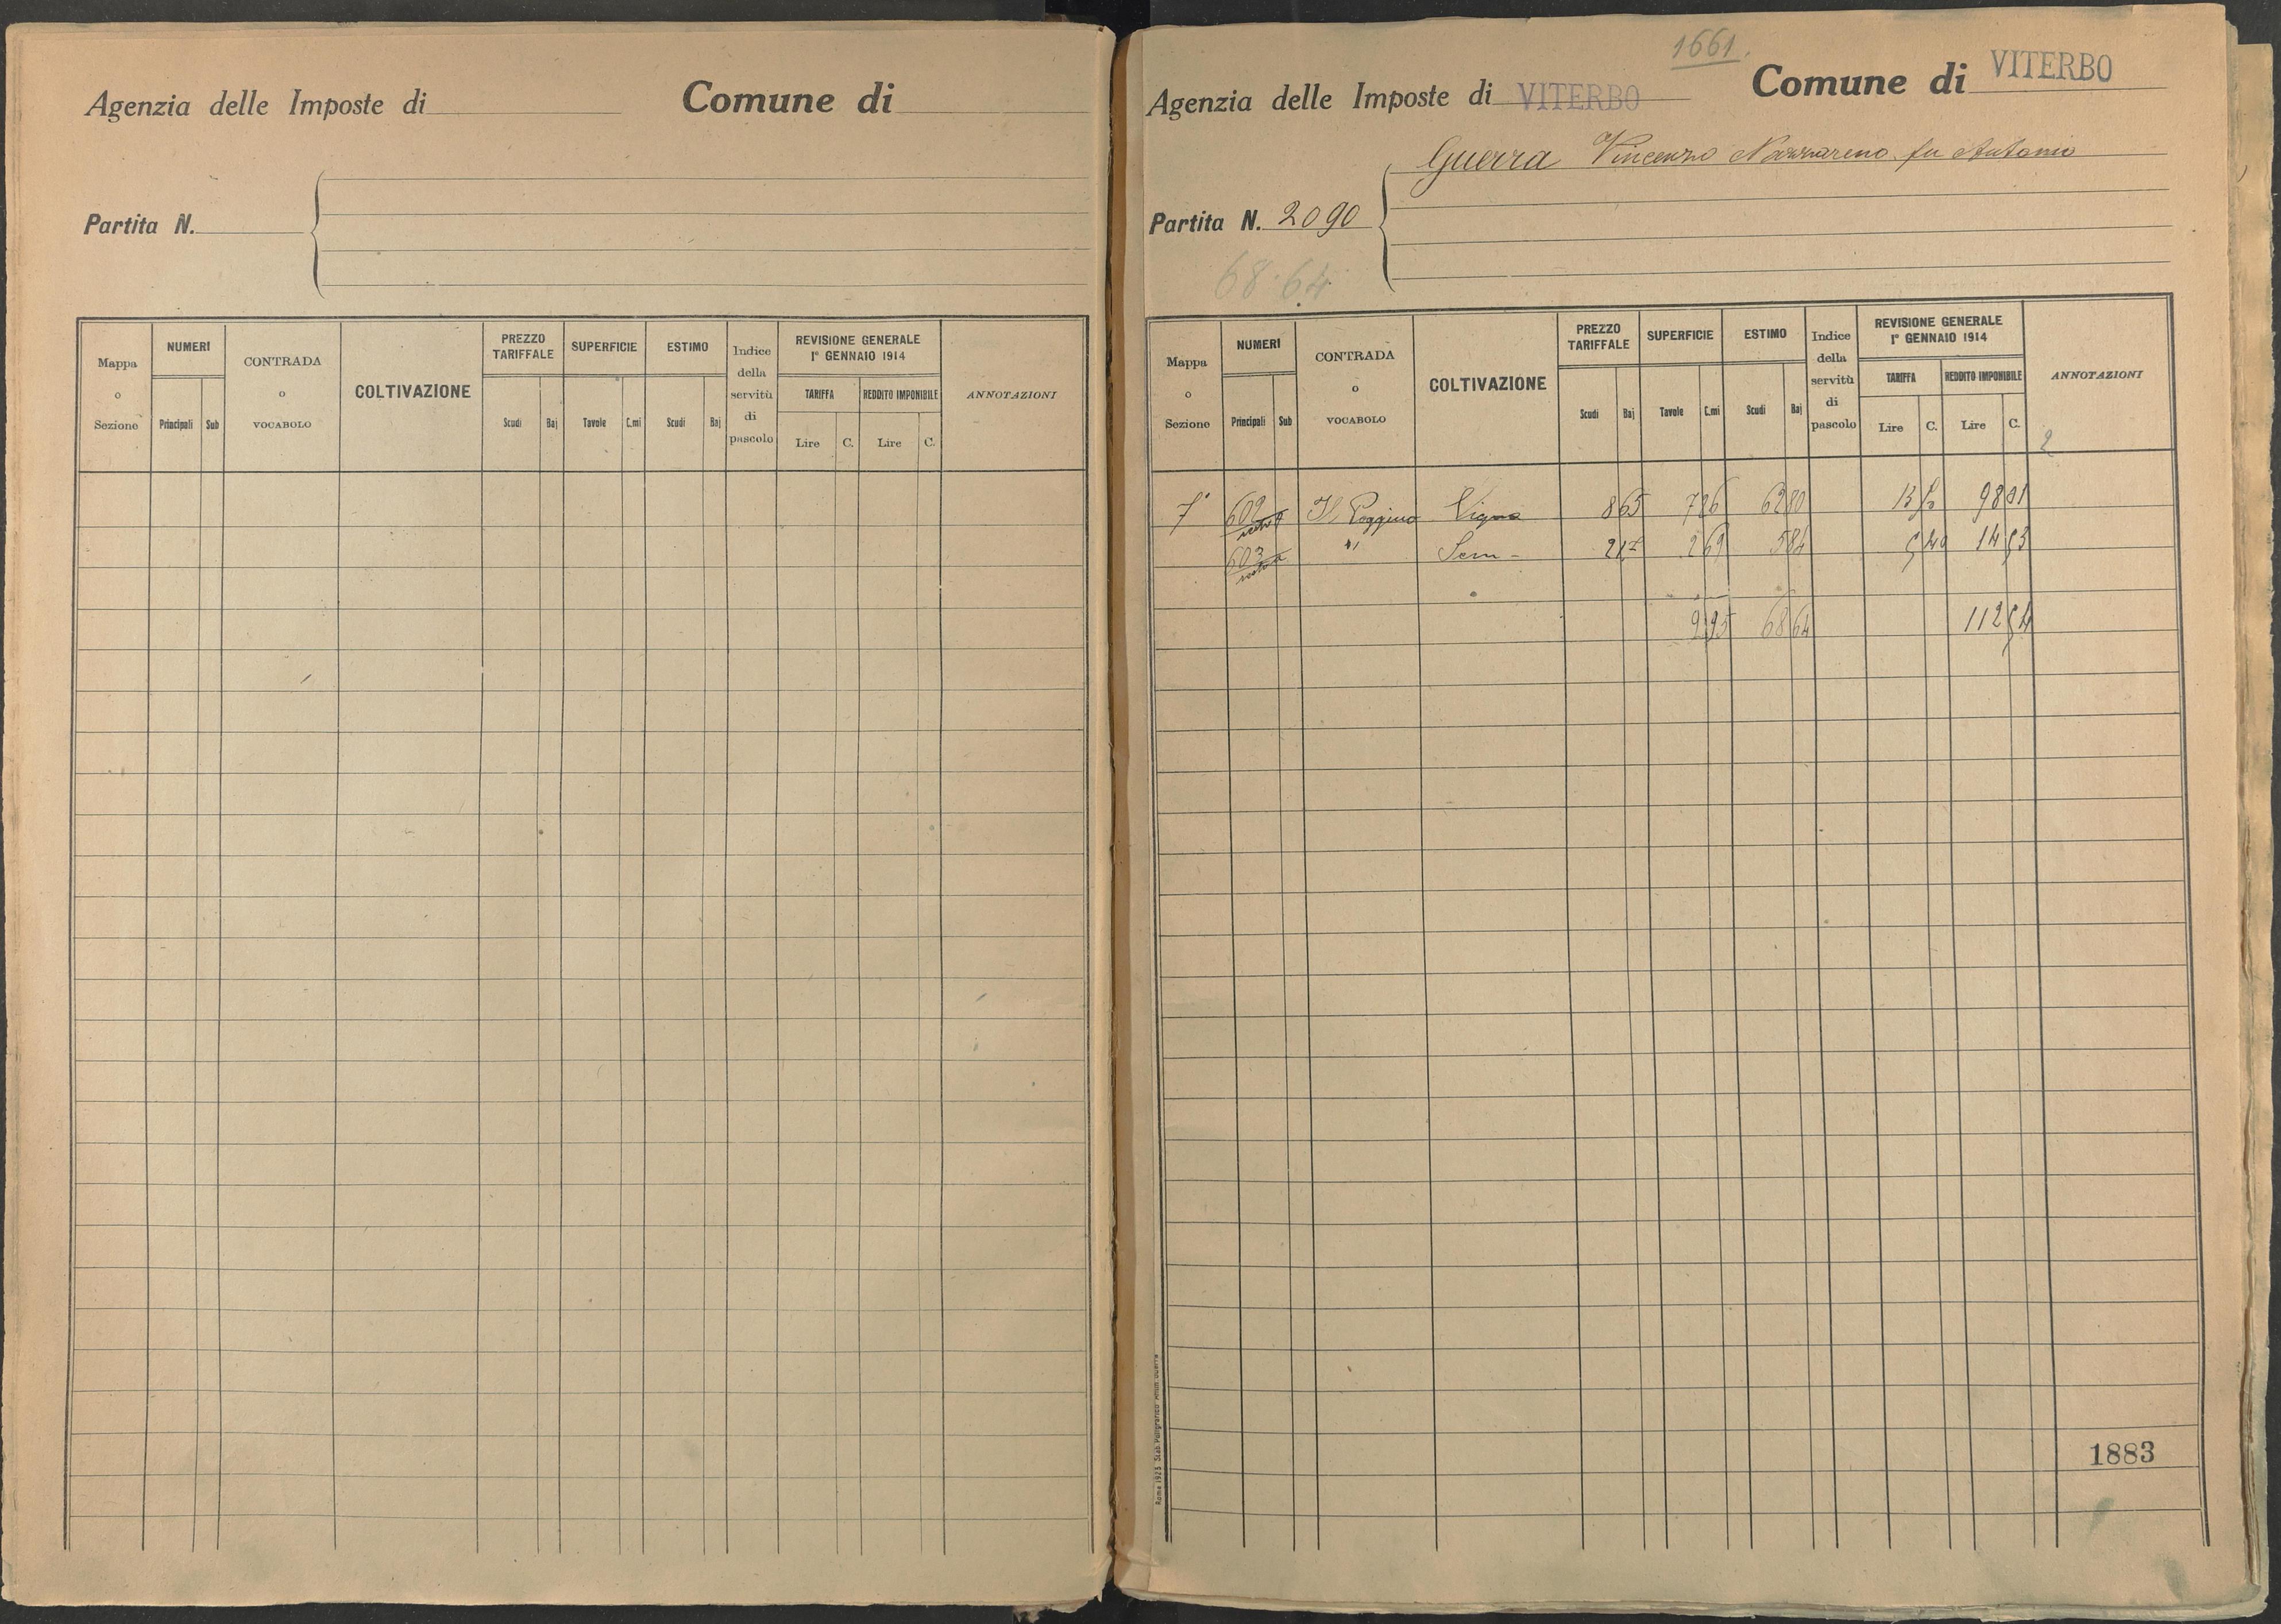 Agenzia delle Imposte di
Comune di
Partita N.
Mappa o Sezione
NUMERI
Principali
Sub
CONTRADA o VOCABOLO
COLTIVAZIONE
PREZZO TARIFFALE
Scudi
Baj
SUPERFICIE
Tavole
C.mi
ESTIMO
Scudi
Baj
Indice della servitù di pascolo
REVISIONE GENERALE
1° GENNAIO 1914
TARIFFA
REDDITO IMPONIBILE
Lire
C.
Lire
C.
ANNOTAZIONI
1661.
Agenzia delle Imposte di VITERBO
Comune di VITERBO
Guerra Vincenzo Nazzareno fu Antonio
Partita N. 2090
68.64
Mappa o Sezione
NUMERI
Principali
Sub
CONTRADA o VOCABOLO
COLTIVAZIONE
PREZZO TARIFFALE
Scudi
Baj
SUPERFICIE
Tavole
C.mi
ESTIMO
Scudi
Baj
Indice della servitù di pascolo
REVISIONE GENERALE
1° GENNAIO 1914
TARIFFA
REDDITO IMPONIBILE
Lire
C.
Lire
C.
ANNOTAZIONI
2
7° 602 Il Poggino Vigna 8 65 7 26 62 80 13 50 98 01
603 " Sem - 2 17 2 69 5 84 5 40 14 53
9 95 68 64 112 54
1883
Roma 1923 Stab. Poligrafico Amm. Guerra